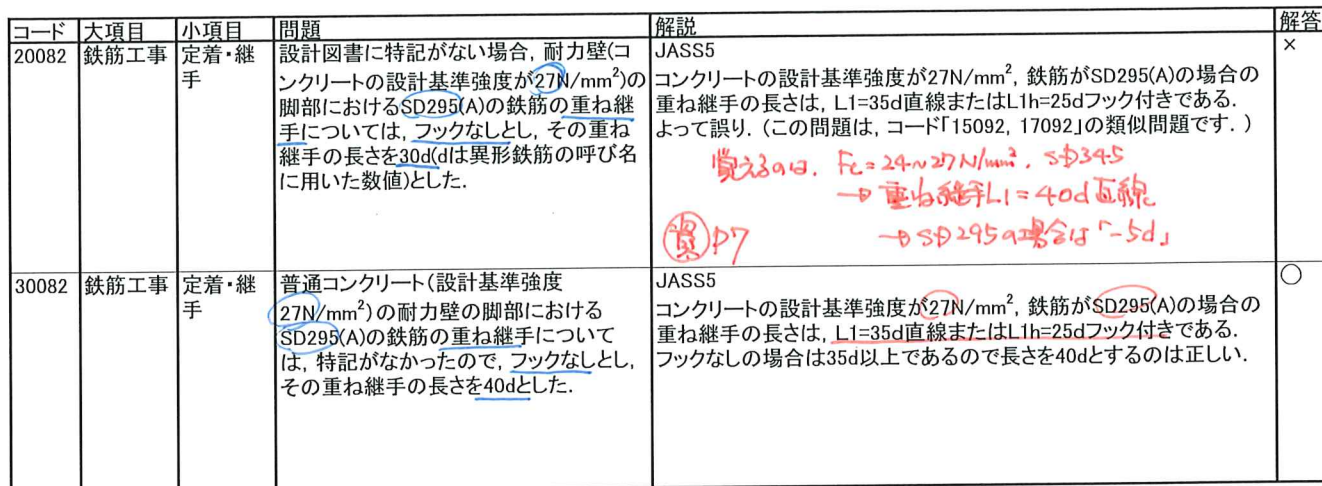 コード 大項目 小項目 問題 解説 解答
20082 鉄筋工事 定着・継手
設計図書に特記がない場合, 耐力壁(コ
ンクリートの設計基準強度が27N/mm²)の
脚部におけるSD295(A)の鉄筋の重ね継
手については, フックなしとし, その重ね
継手の長さを30d(dは異形鉄筋の呼び名
に用いた数値)とした.
JASS5
コンクリートの設計基準強度が27N/mm², 鉄筋がSD295(A)の場合の
重ね継手の長さは, L1=35d直線またはL1h=25dフック付きである.
よって誤り. (この問題は, コード「15092, 17092」の類似問題です. )
覚えるのは, Fc=24~27N/mm², SD345
→ 重ね継手L1=40d直線
資 P7 → SD295の場合は「-5d」
×
30082 鉄筋工事 定着・継手
普通コンクリート(設計基準強度
27N/mm²)の耐力壁の脚部における
SD295(A)の鉄筋の重ね継手について
は, 特記がなかったので, フックなしとし,
その重ね継手の長さを40dとした.
JASS5
コンクリートの設計基準強度が27N/mm², 鉄筋がSD295(A)の場合の
重ね継手の長さは, L1=35d直線またはL1h=25dフック付きである.
フックなしの場合は35d以上であるので長さを40dとするのは正しい.
○